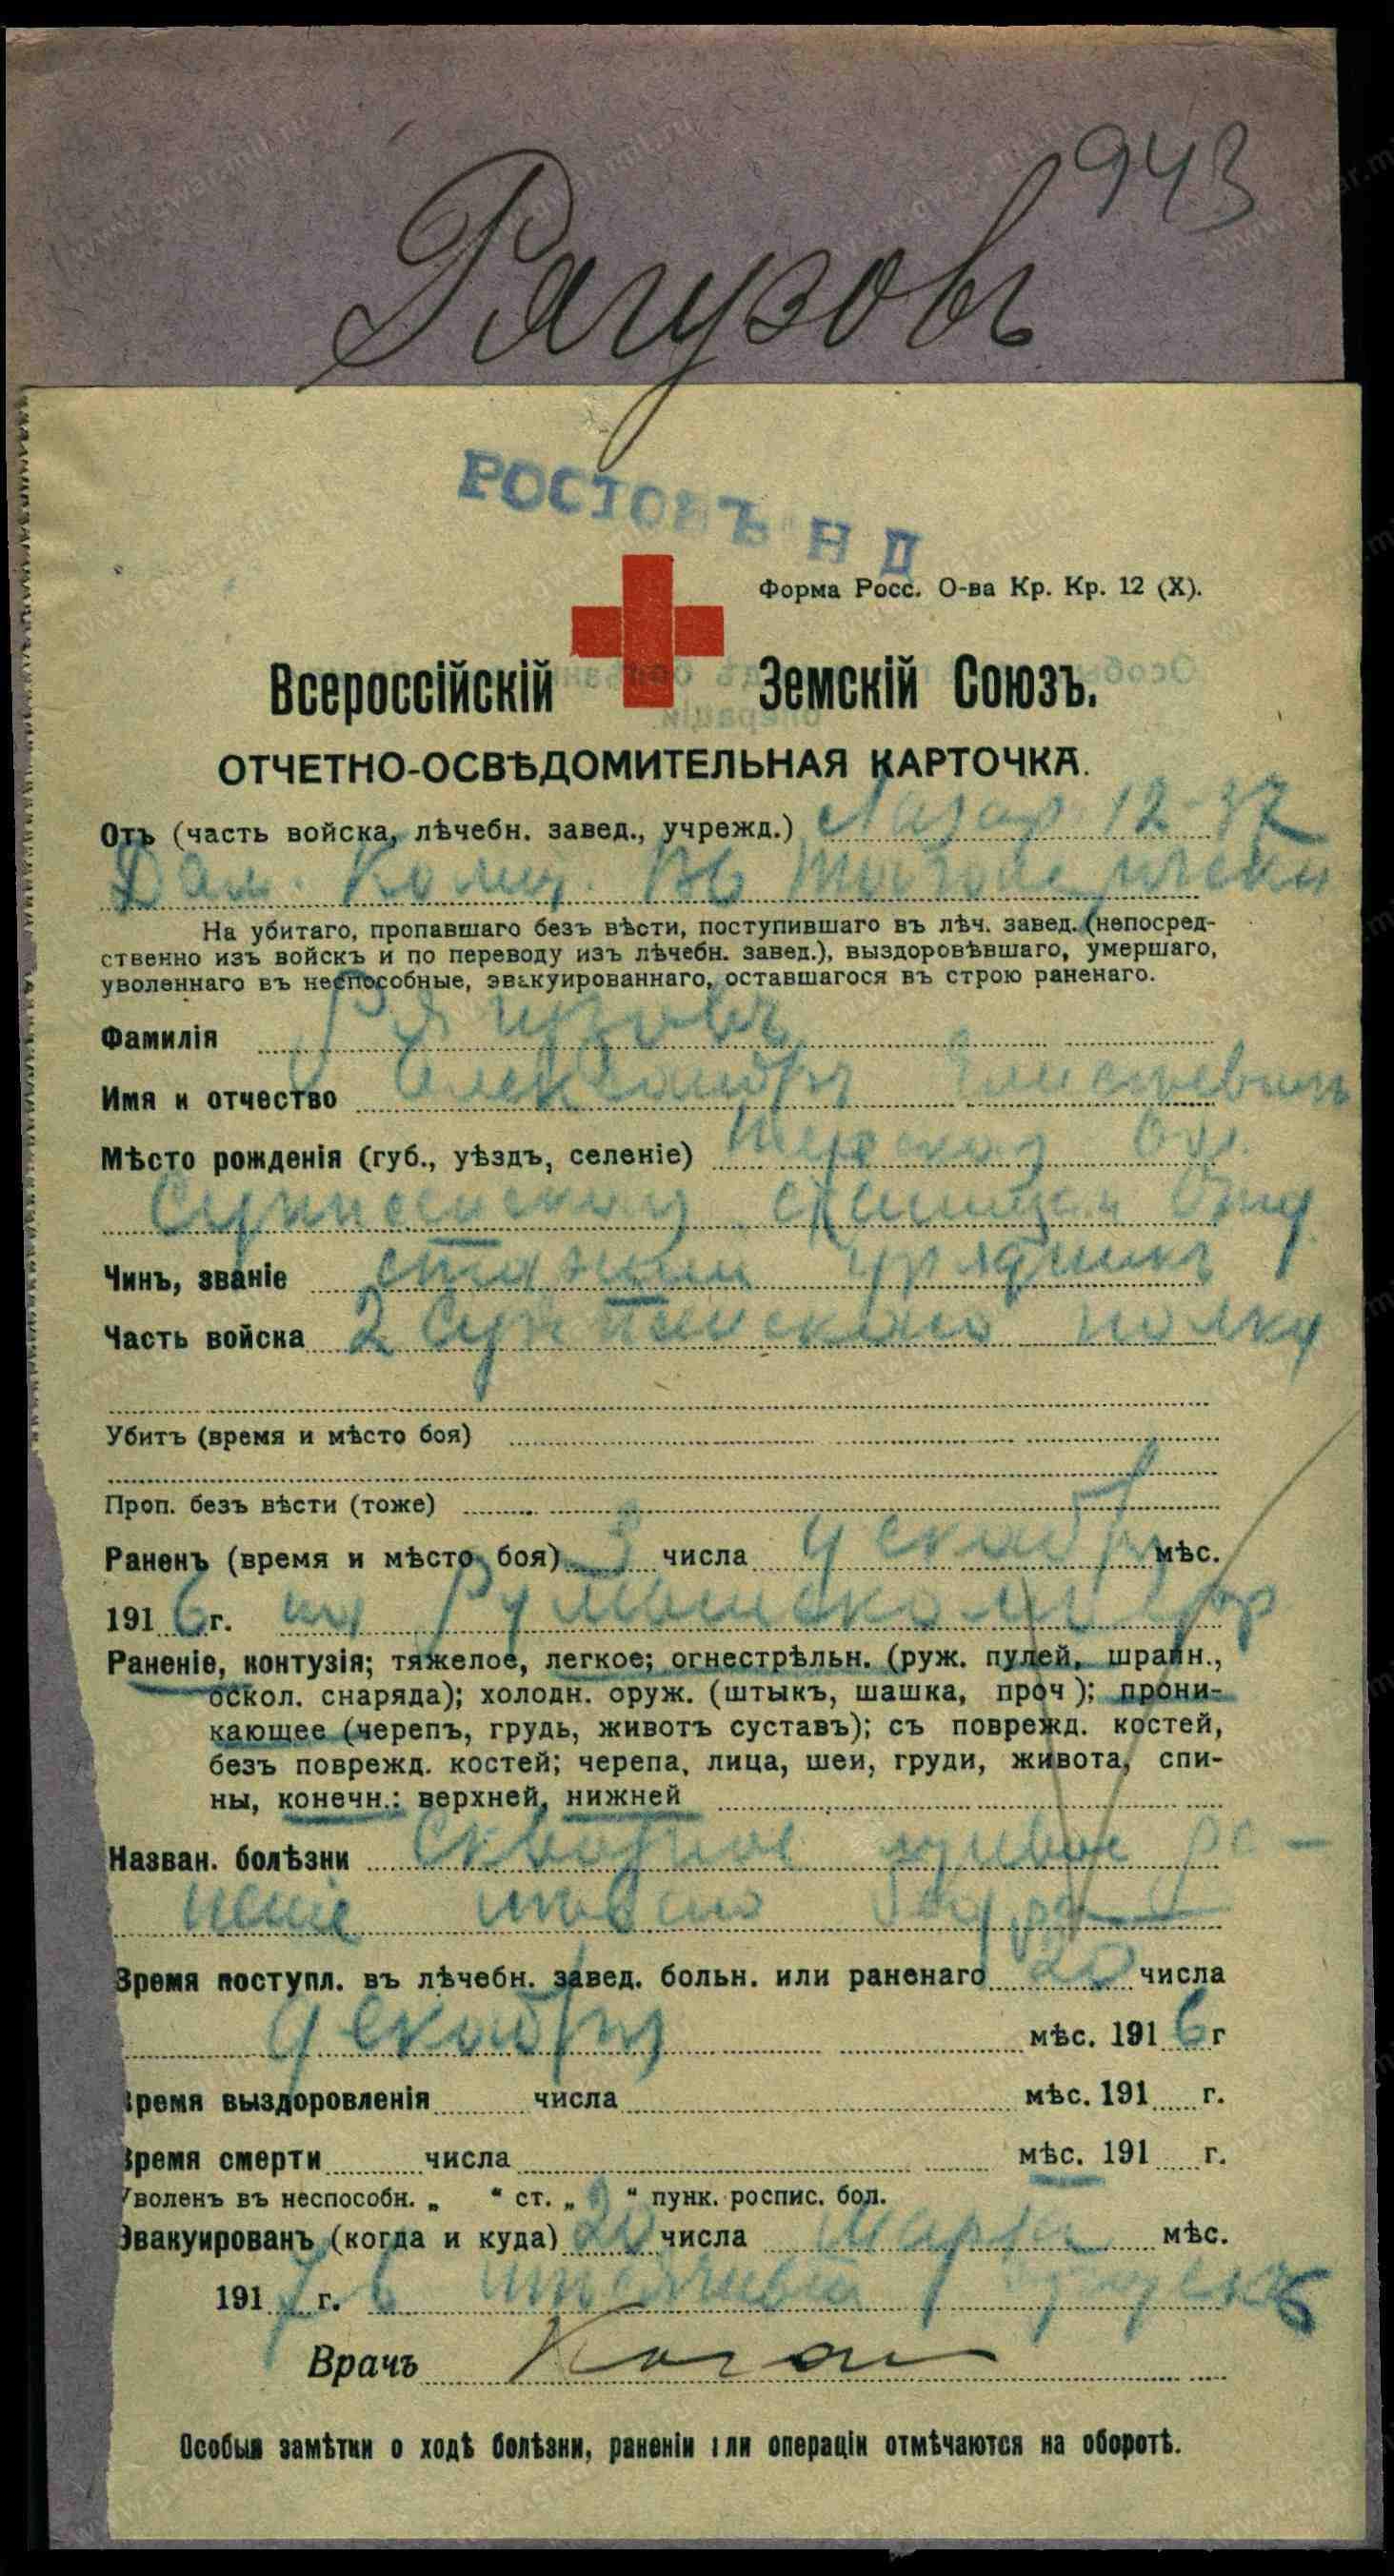 943
Рягузовъ
РОСТОВЪ Н Д
Форма Росс. О-ва Кр. Кр. 12 (X).
Всероссійскій Земскій Союзъ.
ОТЧЕТНО-ОСВѢДОМИТЕЛЬНАЯ КАРТОЧКА.
Отъ (часть войска, лѣчебн. завед., учрежд.) Лазар 12-37
Дам.
На убитаго, пропавшаго безъ вѣсти, поступившаго въ лѣч. завед. (непосред-
ственно изъ войскъ и по переводу изъ лѣчебн. завед.), выздоровѣвшаго, умершаго,
уволеннаго въ неспособные, эвакуированнаго, оставшагося въ строю раненаго.
Фамилія Рягузовъ
Имя и отчество Александръ
Мѣсто рожденія (губ., уѣздъ, селеніе) Терская Обл.
Сунженская станица
Чинъ, званіе старшій урядникъ
Часть войска 2 Сунженскаго полка
Убитъ (время и мѣсто боя)
Проп. безъ вѣсти (тоже)
Раненъ (время и мѣсто боя) 3 числа декабря мѣс.
1916 г. на Румынском фр
Раненіе, контузія; тяжелое, легкое; огнестрѣльн. (руж. пулей, шрапн.,
оскол. снаряда); холодн. оруж. (штыкъ, шашка, проч ); прони-
кающее (черепъ, грудь, животъ суставъ); съ поврежд. костей,
безъ поврежд. костей; черепа, лица, шеи, груди, живота, спи-
ны, конечн.: верхней, нижней
Назван. болѣзни Сквозное пулевое ра-
неніе лѣваго бедра
Время поступл. въ лѣчебн. завед. больн. или раненаго 20 числа
декабря мѣс. 1916 г
Время выздоровленія числа мѣс. 191 г.
Время смерти числа мѣс. 191 г.
Уволенъ въ неспособн. „ “ ст. „ “ пунк. роспис. бол.
Эвакуированъ (когда и куда) 24 числа Марта мѣс.
1917 г. в
Врачъ Коган
Особыя замѣтки о ходѣ болѣзни, раненіи или операціи отмѣчаются на оборотѣ.